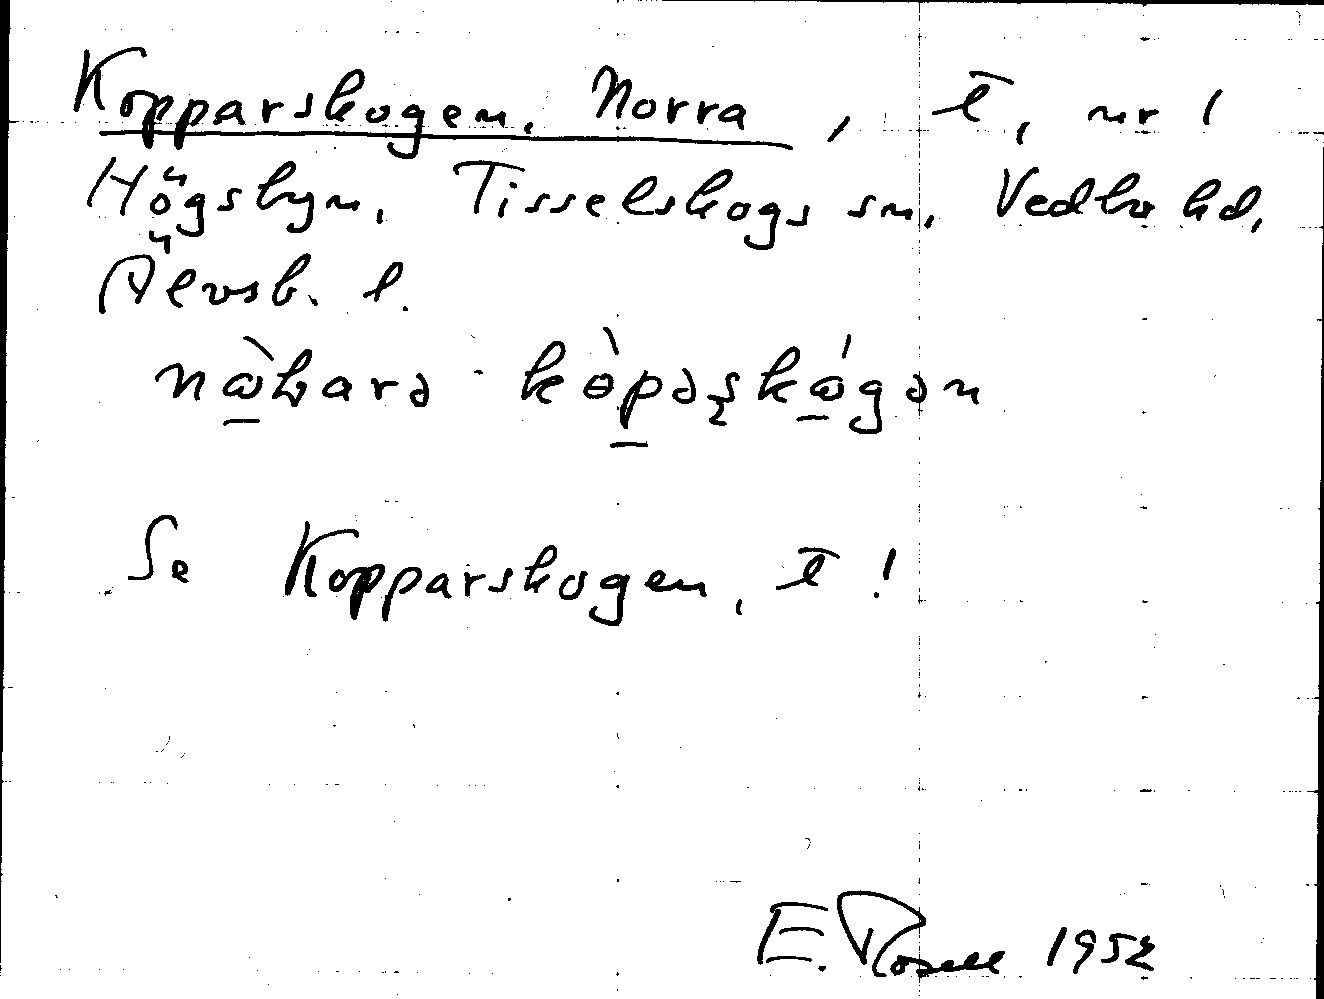 Kopparskogen, Norra, t, nr 1
Högsbyn, Tisselskogs sn, Vedbo hd,
Älvsb. l.
Se Kopparskogen, t!
E. Rosell 1952